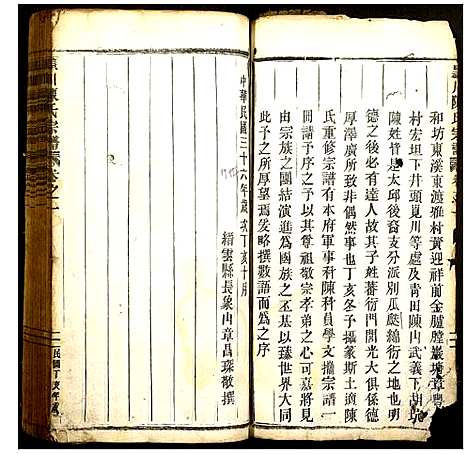 和坊東溪東渡雅村黃迎祥前金臚膛巖塘章豐
村宏坦下井頭覓川等處及青田陳內武義下胡坑
陳姓皆是太邱後裔支分派別瓜瓞綿衍之地也明
德之後必有達人故其子姓蕃衍門閭光大俱係德
厚澤廣所致非偶然事也丁亥冬子攝篆斯土適陳
氏重修宗譜有本府軍事科陳科員學文擔宗譜一
冊請予序之予以其尊祖敬宗孝弟之心可嘉將見
由宗族之團結演進為國族之丕基以臻世界大同
此予之所厚望焉爰略撰數語而為之序
中華民國三十六年歲次丁亥十月
縉雲縣長象冉章昌琛敬撰
川陳氏宗譜
卷之一
民國丁亥年